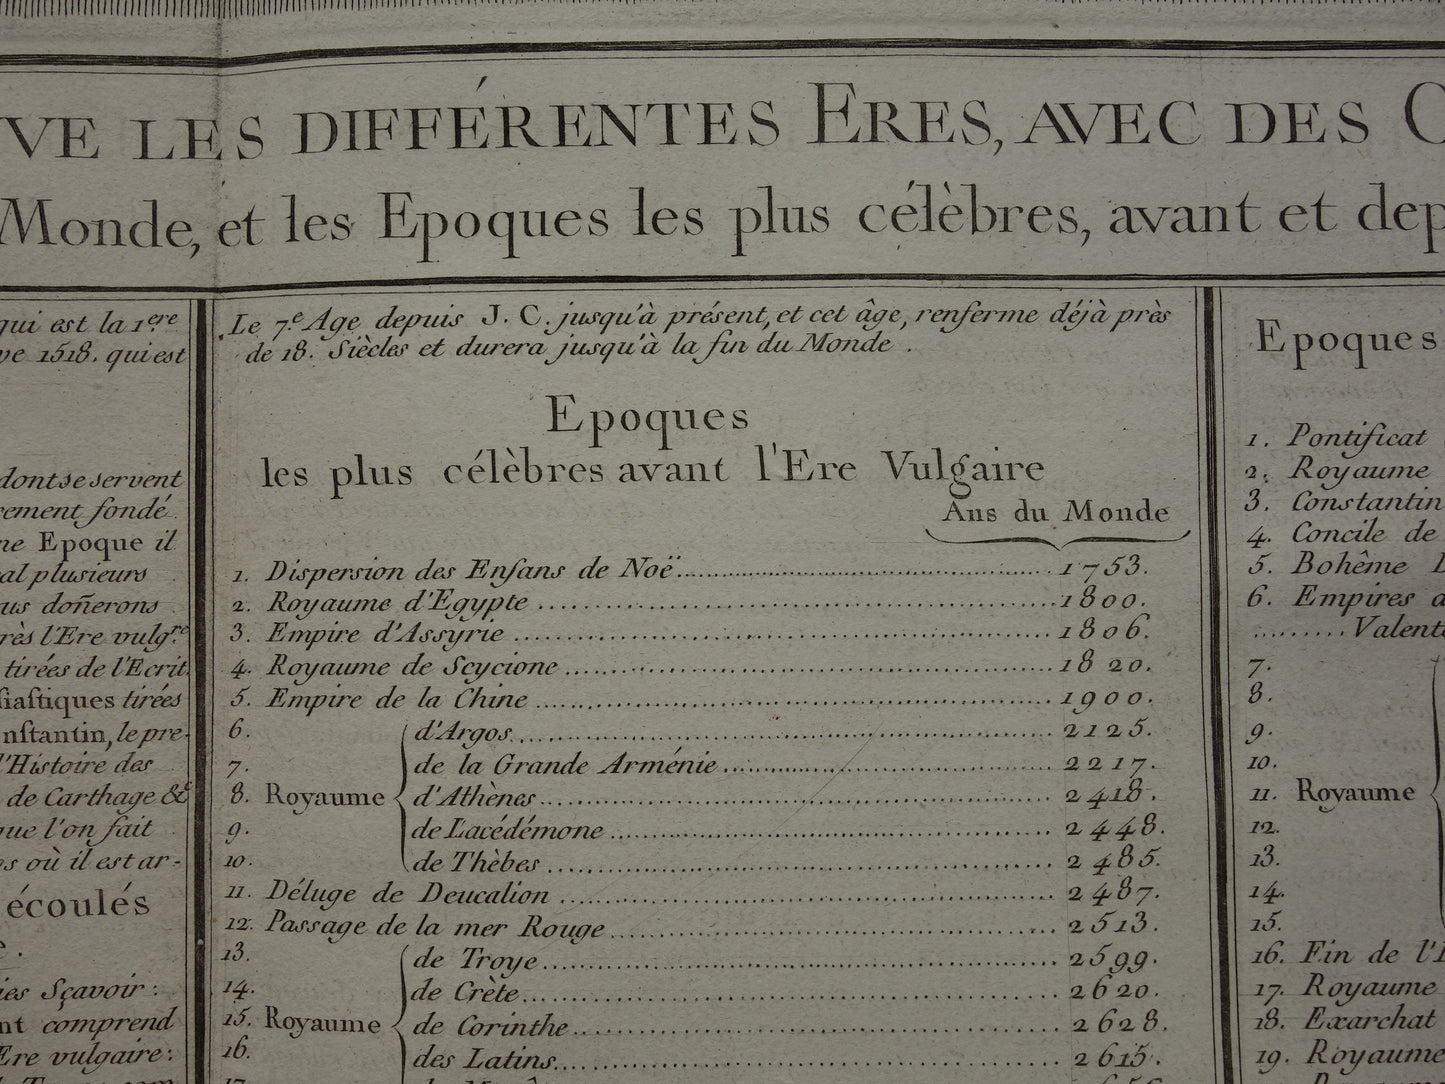 VE LES DIFFÉRENTES ERES, AVEC DES
Monde, et les Epoques les plus célèbres, avant et dep
qui est la 1.ere
ve 1518. qui est
dont se servent
rement fondé
ne Epoque il
al plusieurs
us doñerons
rès l'Ere vulg.re
tirées de l'Ecrit.
siaſtiques tirées
nſtantin, le pre-
l'Histoire des
de Carthage &c
que l'on fait
ps où il est ar-
écoulés
e.
ies Sçavoir:
nt comprend
Ere vulgaire:
Le 7.e Age depuis J. C. jusqu'à présent, et cet âge, renferme déjà près
de 18. Siècles et durera jusqu'à la fin du Monde .
Epoques
les plus célèbres avant l'Ere Vulgaire
Ans du Monde
1. Dispersion des Enfans de Noë........ 1753.
2. Royaume d'Egypte ........ 1800.
3. Empire d'Assyrie ........ 1806.
4. Royaume de Scycione ........ 1820.
5. Empire de la Chine ........ 1900.
6. d'Argos ........ 2125.
7. de la Grande Arménie ........ 2217.
8. Royaume d'Athènes ........ 2418.
9. de Lacédémone ........ 2448.
10. de Thèbes ........ 2485.
11. Déluge de Deucalion ........ 2487.
12. Passage de la mer Rouge ........ 2513.
13. de Troye ........ 2599.
14. de Crète ........ 2620.
15. Royaume de Corinthe ........ 2628.
16. des Latins ........ 2615.
17.
Epoques
1. Pontificat
2. Royaume
3. Constantin
4. Concile de
5. Bohême
6. Empires
......... Valent
7.
8.
9.
10.
11. Royaume
12.
13.
14.
15.
16. Fin de l'
17. Royaume
18. Exarchat
19. Royaume